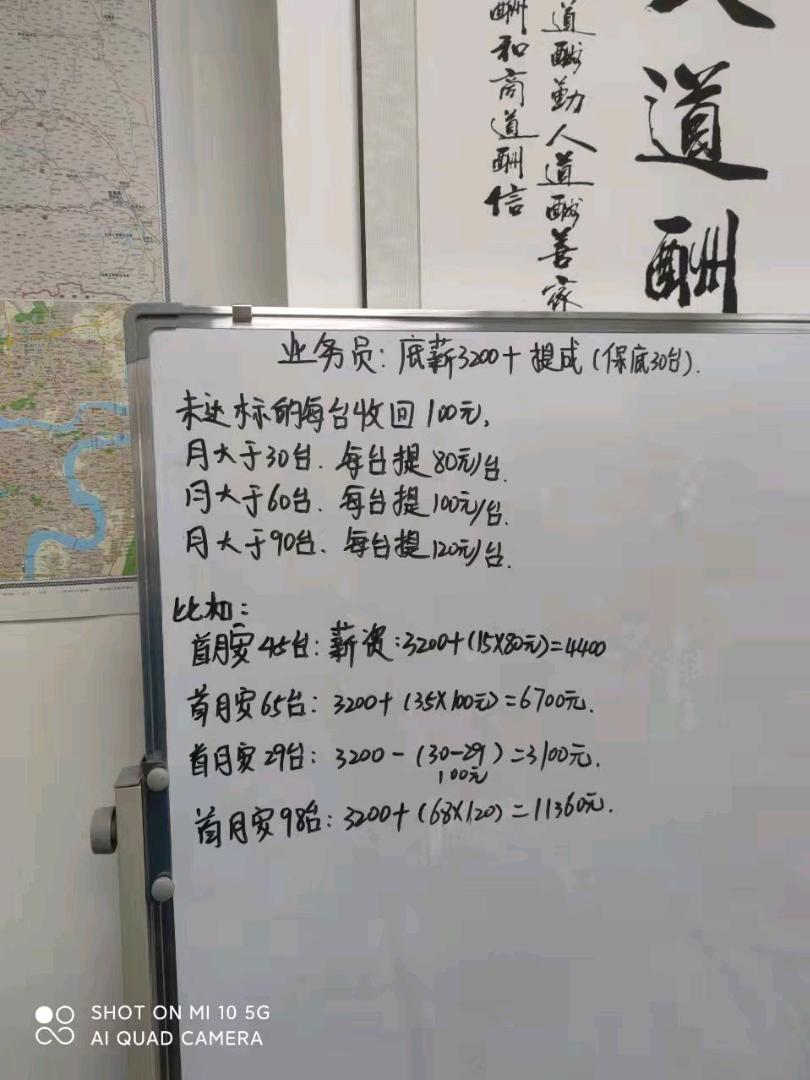 道酬
道酬勤人道酬善家
酬和商道酬信
业务员：底薪3200+提成（保底30台）.
未达标的每台收回100元,
月大于30台. 每台提80元/台.
月大于60台. 每台提100元/台.
月大于90台. 每台提120元/台.
比如：
首月安45台：薪资：3200+(15X80元)=4400
首月安65台：3200+(35X100元)=6700元.
首月安29台：3200-(30-29)=3100元.
100元
首月安98台：3200+(68X120)=11360元.
SHOT ON MI 10 5G
AI QUAD CAMERA